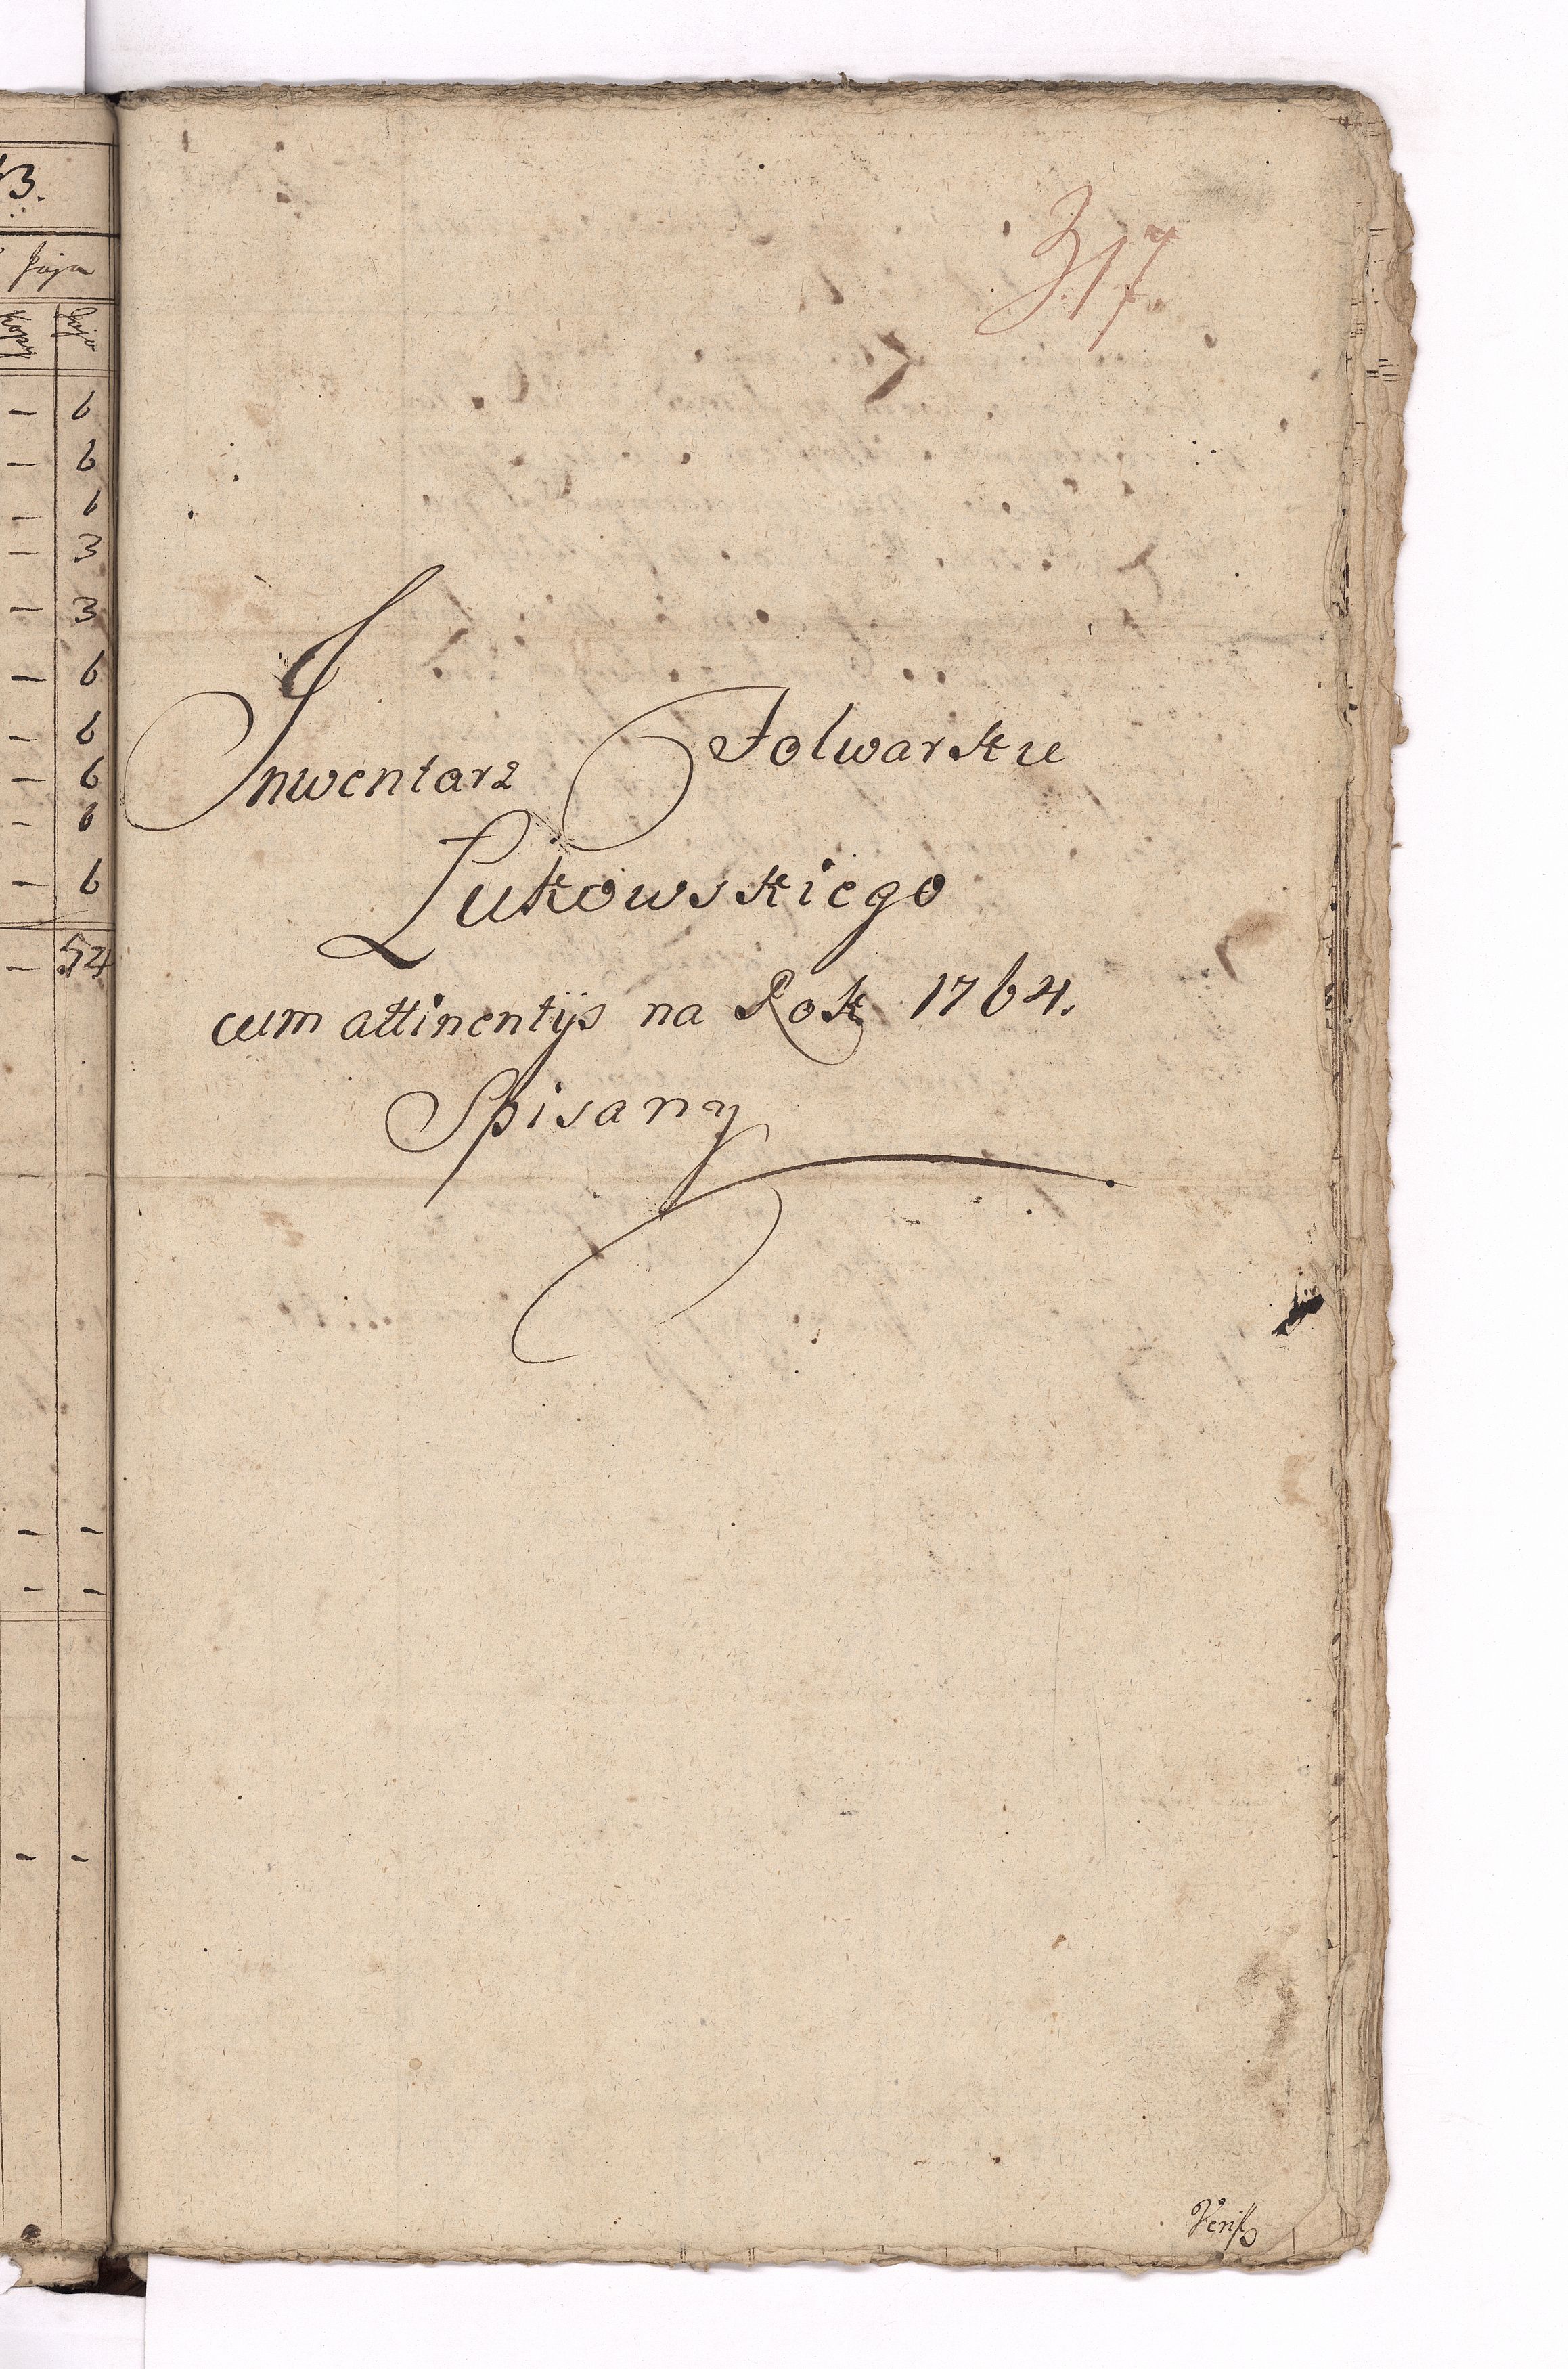 3.
Jaja
Kopy Jaja
– 6
– 6
– 6
– 3
– 3
– 6
– 6
– 6
– 6
– 6
– 54
– –
– –
– –
317
Inwentarz Folwarku
Lukowskiego
cum attinentijs na Rok 1764.
Spisany